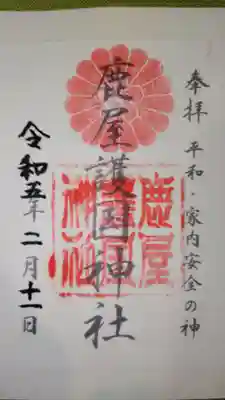 奉拝 平和・家内安全の神
鹿屋護国神社
令和五年二月十一日
鹿屋護国神社